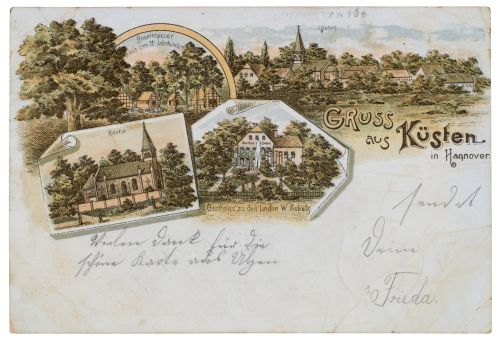 Bauernhäuser
aus dem 16. Jahrhundert
Küsten
Kirche
Gasthaus zu den Linden W.
GRUSS
aus Küsten
in Hannover
Vielen Dank für die
schöne Karte aus Ülzen
sendet
Deine
Frieda.